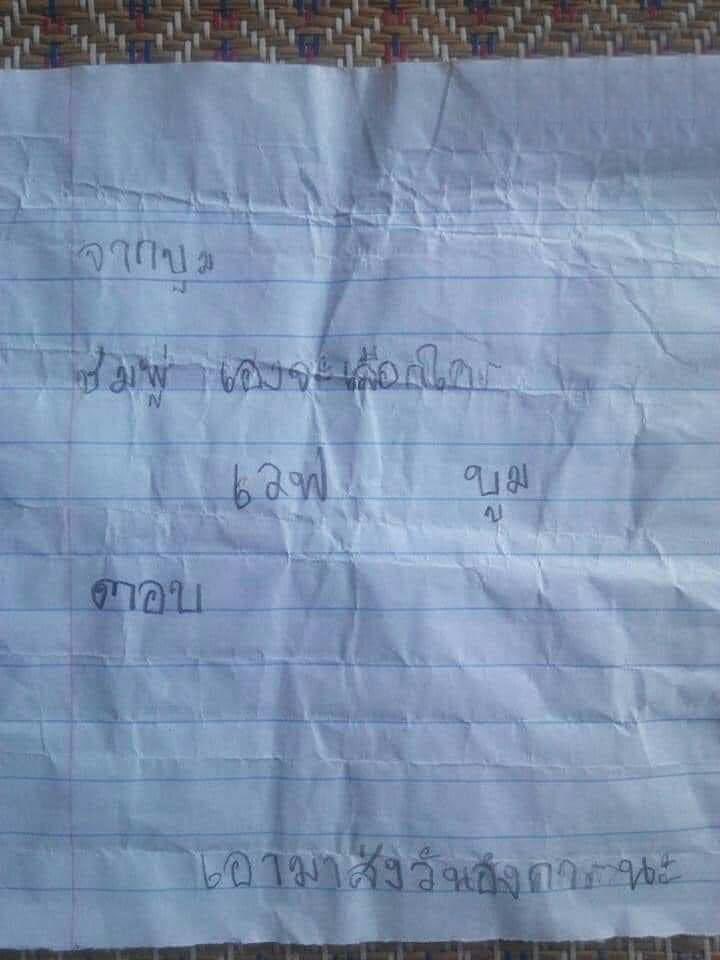 จากบูม
ชมพู่ เองจะเลือกใคร
เวฟ บูม
ตอบ
เอามาส่งวันอังคารนะ